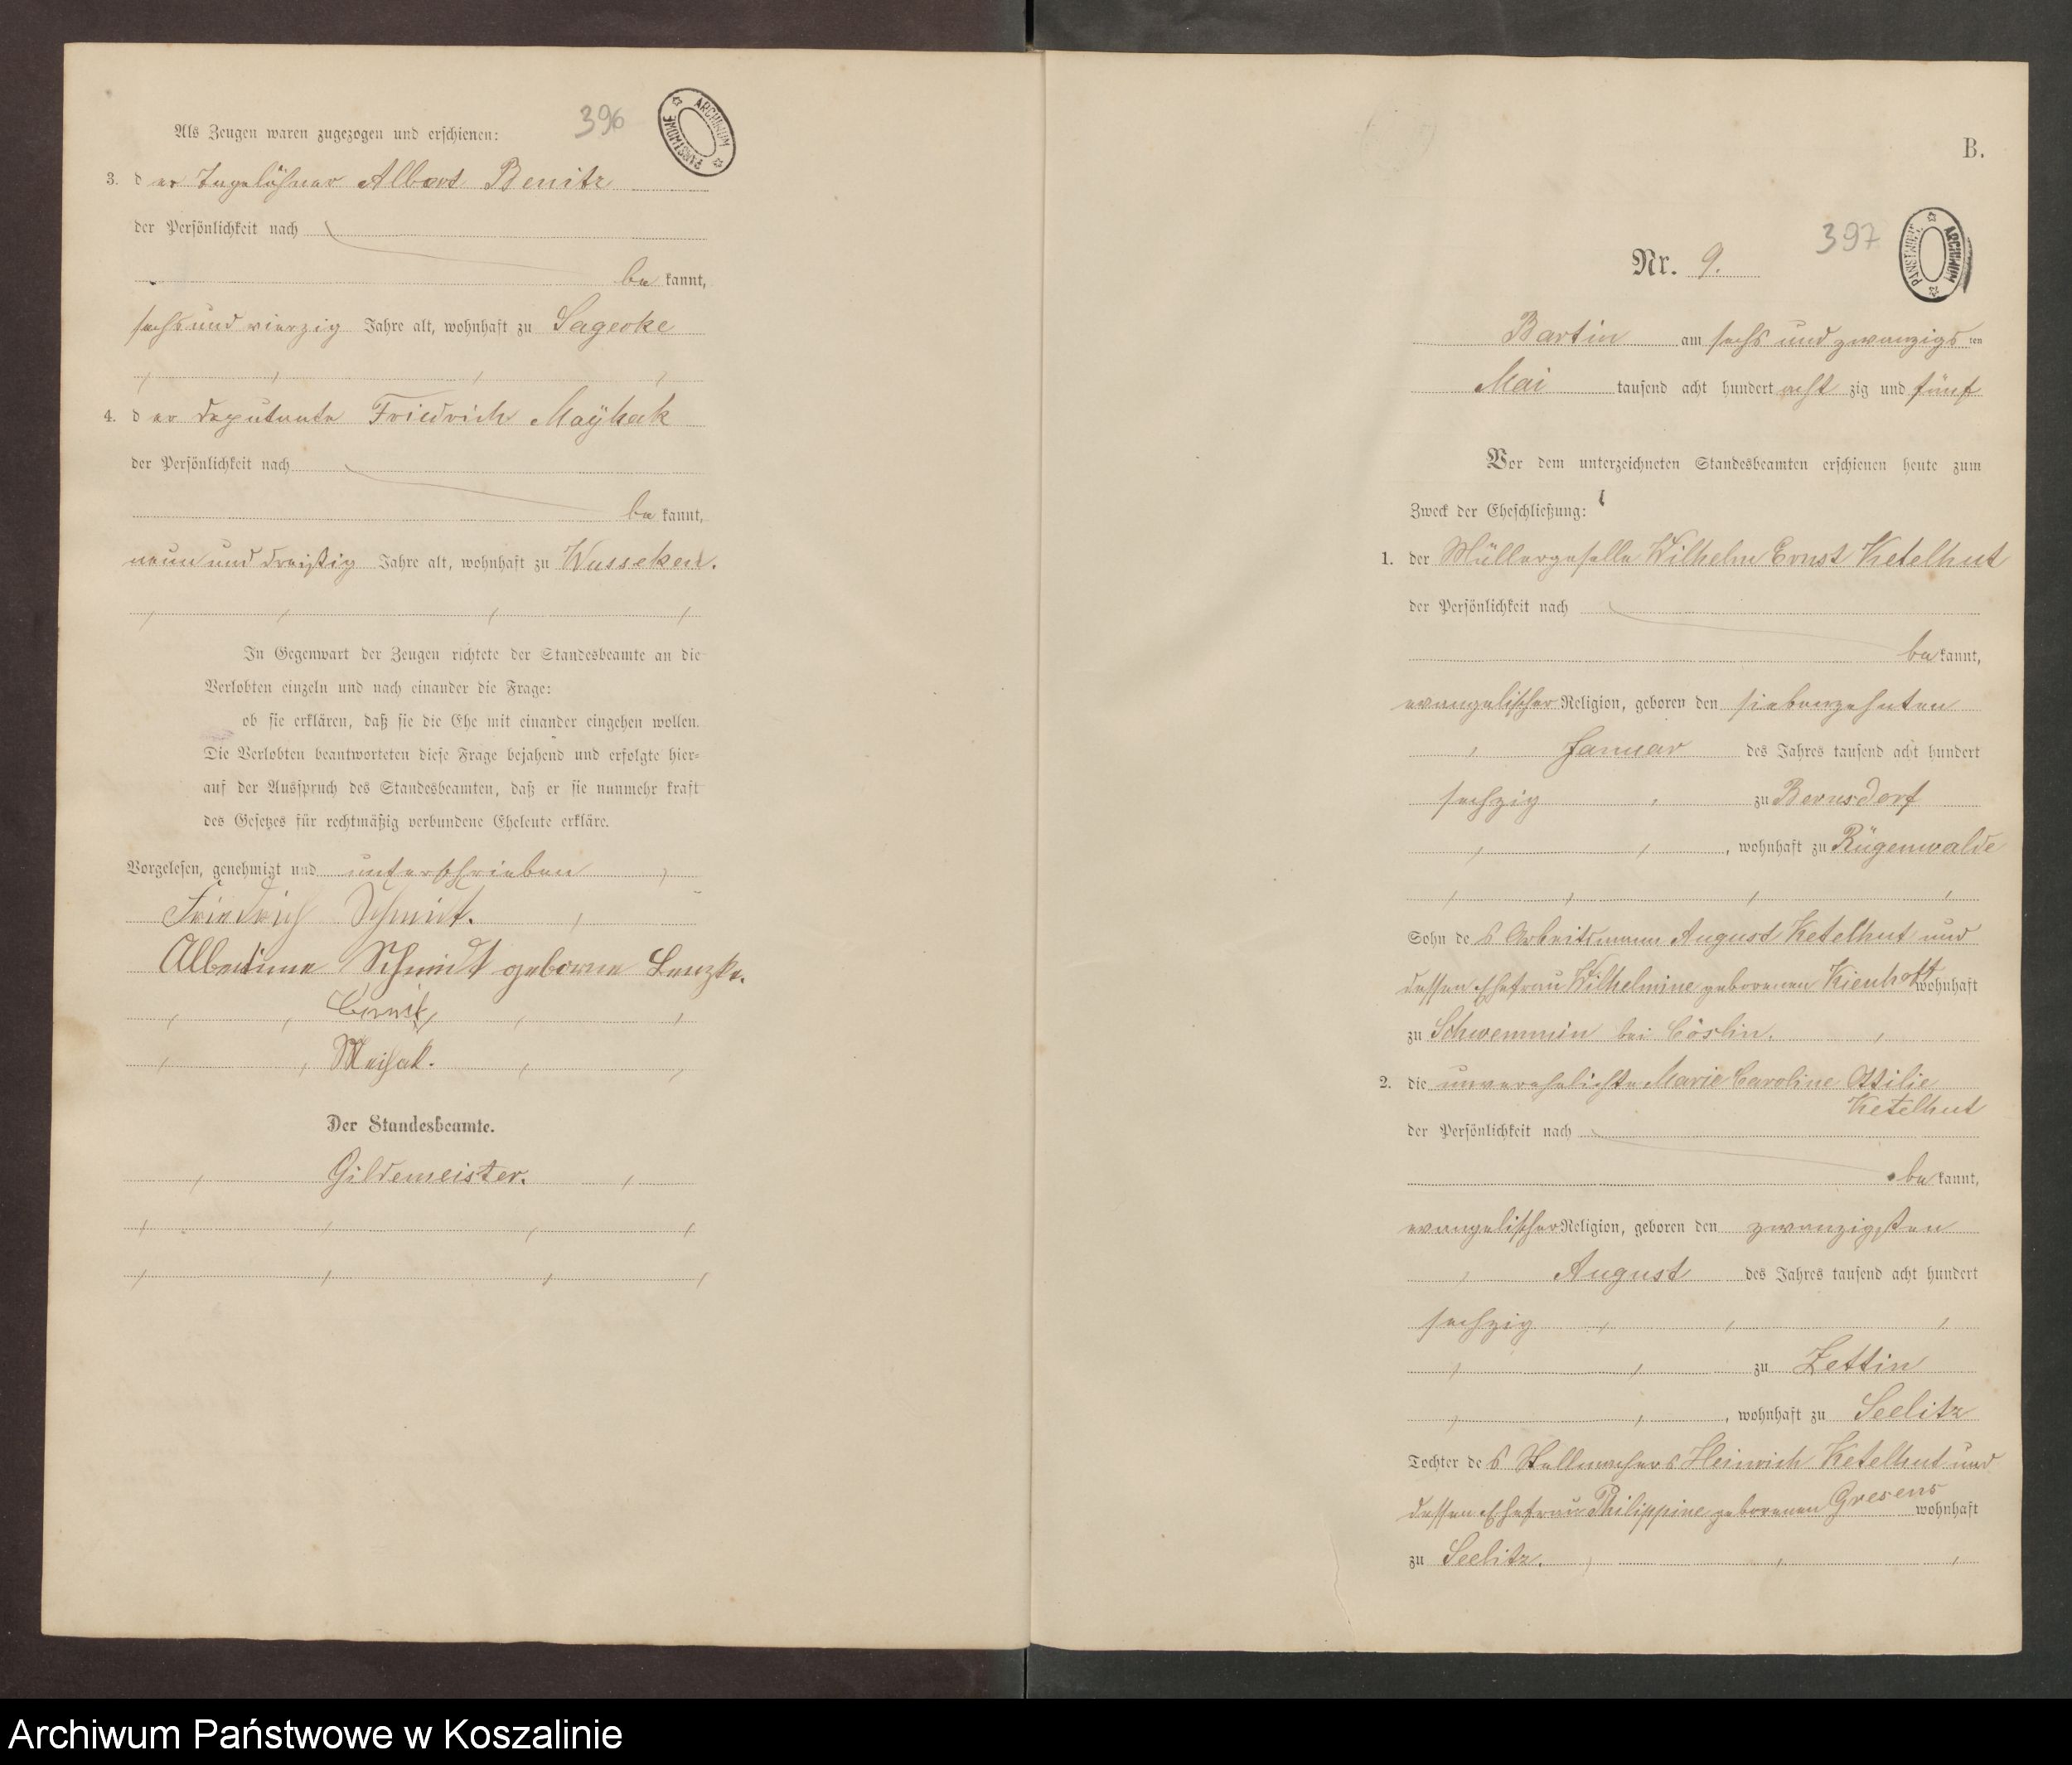 396
ARCHIWUM PAŃSTWOWE
Als Zeugen waren zugezogen und erschienen:
3. der Tagelöhner Albert Benitz
der Persönlichkeit nach
bekannt,
sechs und vierzig Jahre alt, wohnhaft zu Sagerke
4. der Deputante Friedrich Mayhak
der Persönlichkeit nach
bekannt,
neun und dreißig Jahre alt, wohnhaft zu Wusseken.
In Gegenwart der Zeugen richtete der Standesbeamte an die
Verlobten einzeln und nach einander die Frage:
ob sie erklären, daß sie die Ehe mit einander eingehen wollen.
Die Verlobten beantworteten diese Frage bejahend und erfolgte hier-
auf der Ausspruch des Standesbeamten, daß er sie nunmehr kraft
des Gesetzes für rechtmäßig verbundene Eheleute erkläre.
Vorgelesen, genehmigt und unterschrieben
Friedrich Schmidt.
Albertine Schmidt geborne Lenzke.
Meihak.
Der Standesbeamte.
Gildemeister.
B.
397
ARCHIWUM PAŃSTWOWE
Nr. 9.
Bartin am sechs und zwanzigsten
Mai tausend acht hundert achtzig und fünf
Vor dem unterzeichneten Standesbeamten erschienen heute zum
Zweck der Eheschließung:
1. der Müllergeselle Wilhelm Ernst Ketelhut
der Persönlichkeit nach
bekannt,
evangelischer Religion, geboren den siebenzehnten
Januar des Jahres tausend acht hundert
sechzig zu Bernsdorf
, wohnhaft zu Rügenwalde
Sohn des Arbeitsmann August Ketelhut und
dessen Ehefrau Wilhelmine geborenen Kienhoft wohnhaft
zu Schwemmin bei Cöslin.
2. die unverehelichte Marie Caroline Ottilie
Ketelhut
der Persönlichkeit nach
bekannt,
evangelischer Religion, geboren den zwanzigsten
August des Jahres tausend acht hundert
sechzig
zu Zettin
, wohnhaft zu Seelitz
Tochter des Stellmachers Heinrich Ketelhut und
dessen Ehefrau Philippine geborenen Gresens wohnhaft
zu Seelitz.
Archiwum Państwowe w Koszalinie